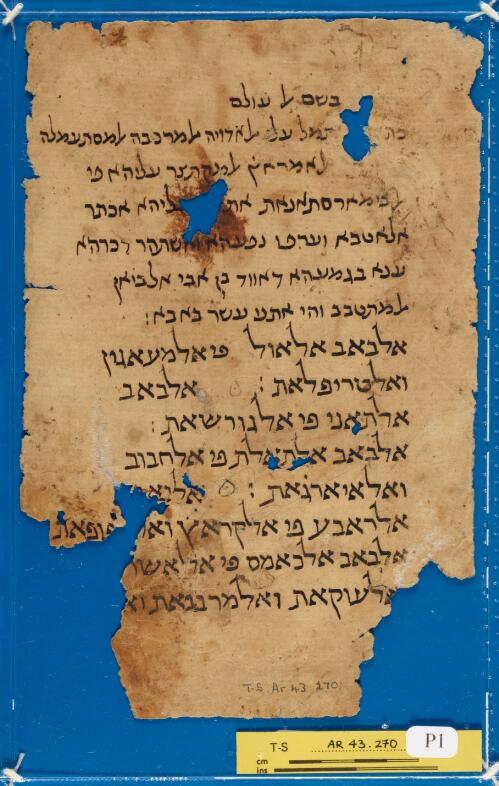 בשם ל עולם
תמל עלי לאדויה למרכבה למסתעמלה
לאמראץ למקתצר עליהא פי
אלאטבא וערפו נפעהא ואשתהר דכרהא
ענא בגמעהא דאווד בן אבי אלביאן
למתטבב והי אתנא עשר באבא:
אלבאב אלאול פי אלמעאגין
ואלטריפלאת: אלבאב
אלתאני פי אלגורשאת:
אלבאב אלתאלת פי אלחבוב
ואלאיארגאת:
אלראבע פי אלקראץ
אלבאב אלכאמס פי
אללעוקאת ואלמרבבאת
T-S Ar 43 270
T-S AR 43.270
P1
cm
ins